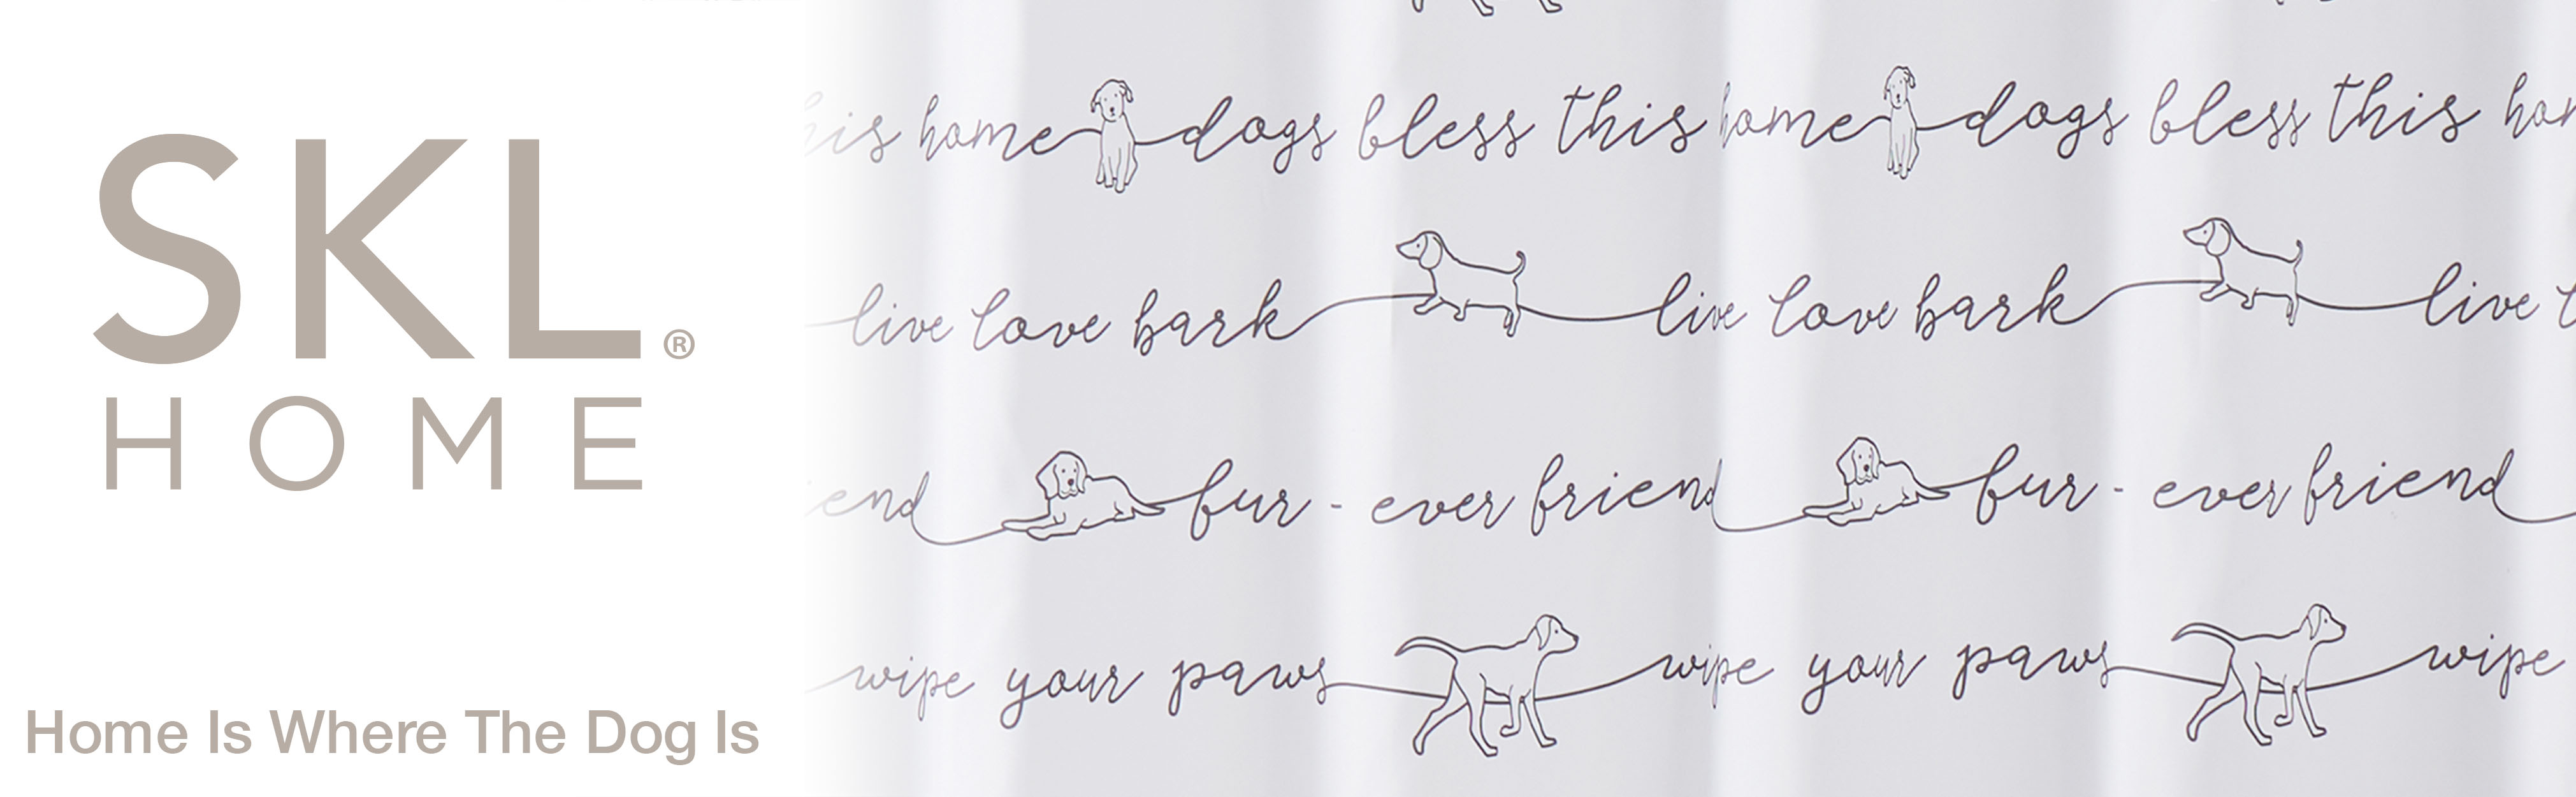 SKL®
HOME
Home Is Where The Dog Is
his home dogs bless this home dogs bless this hom
live love bark live love bark live l
end fur-ever friend fur-ever friend
wipe your paws wipe your paws wipe